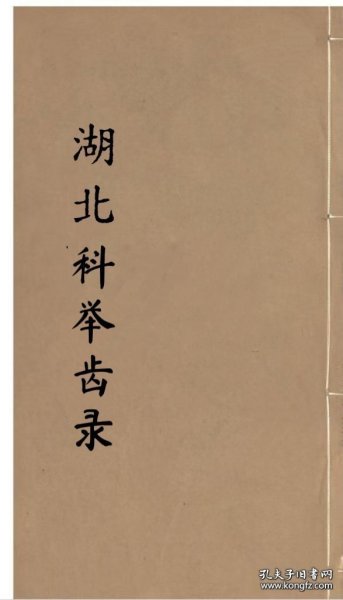 湖北科举齿录
孔夫子旧书网
www.kongfz.com